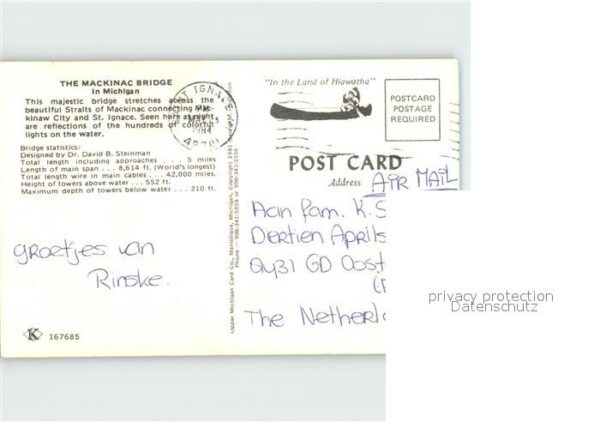 THE MACKINAC BRIDGE
In Michigan
This majestic bridge stretches across the
beautiful Straits of Mackinac connecting Mac-
kinaw City and St. Ignace. Seen here at night
are reflections of the hundreds of colorful
lights on the water.
Bridge statistics:
Designed by Dr. David B. Steinman
Total length including approaches . . . 5 miles
Length of main span . . . 8,614 ft. (World's longest)
Total length wire in main cables . . . 42,000 miles.
Height of towers above water . . . 552 ft.
Maximum depth of towers below water . . . 210 ft.
groetjes van
Rinske.
K 167685
Upper Michigan Card Co., Manistique, Michigan, Copyright 1981
Phone - 906-341-5858 or
IGNACE
PM
1984
"In the Land of Hiawatha"
POSTCARD
POSTAGE
REQUIRED
POST CARD
Address
AIR MAIL
Aan fam. K. S
Dertien Aprils
GD Oost
The Netherla
privacy protection
Datenschutz